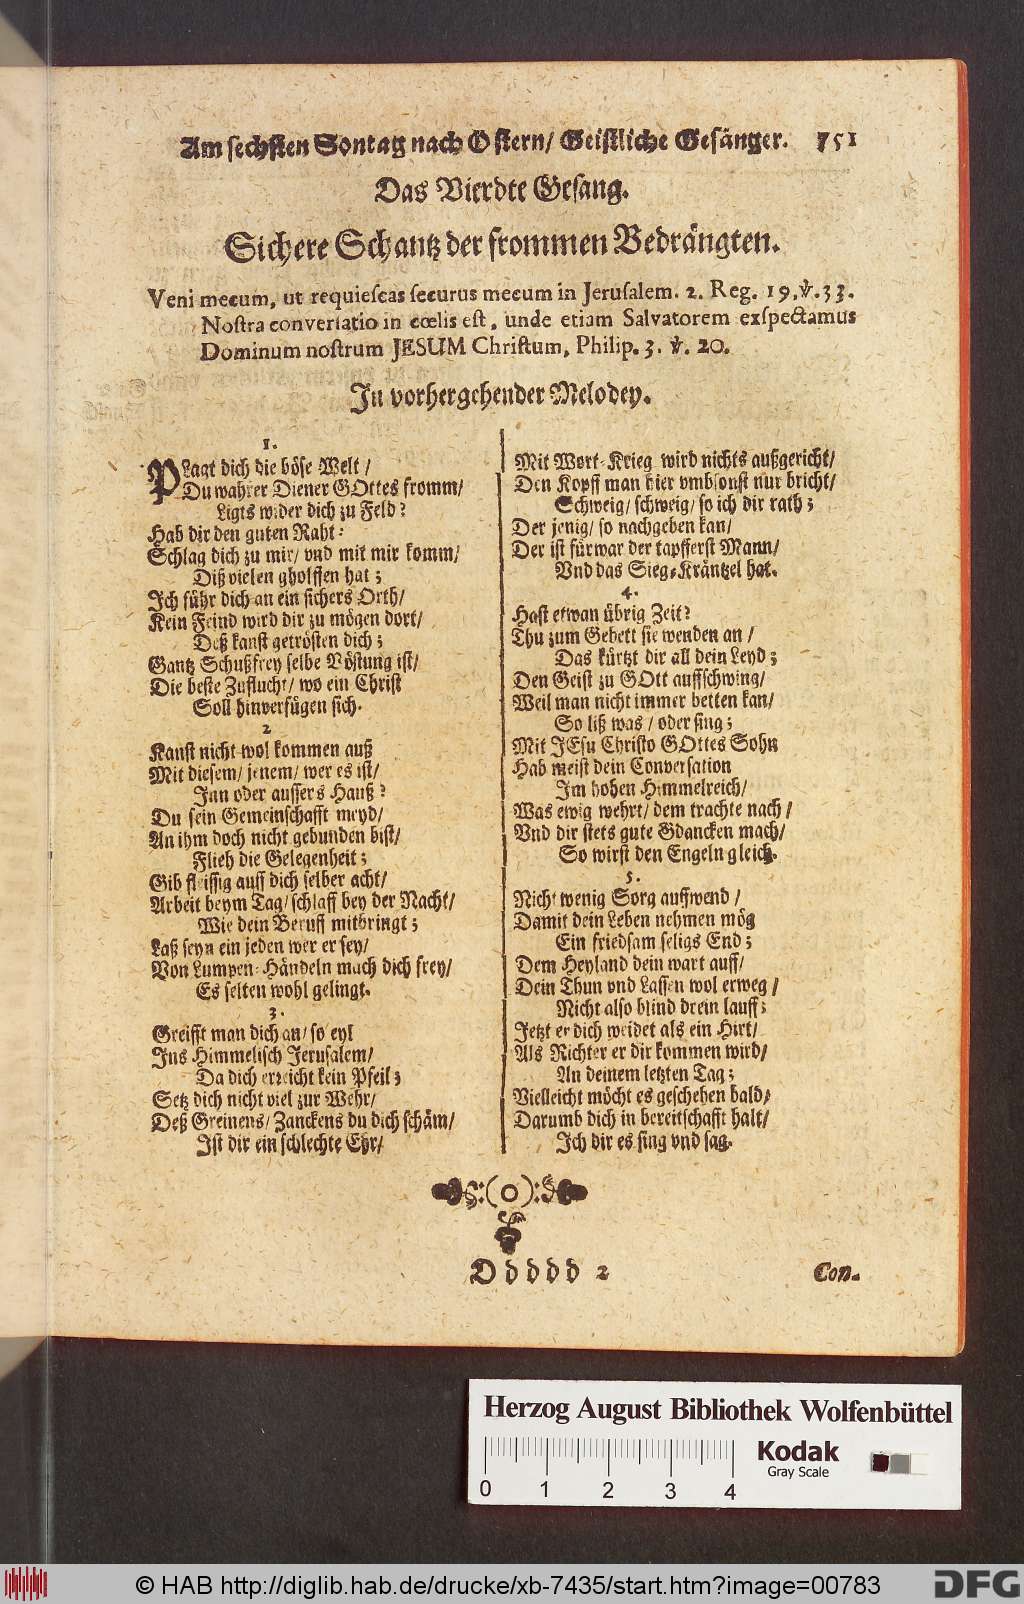 Am sechsten Sontag nach Ostern/ Geistliche Gesänger. 751
Das Vierdte Gesang.
Sichere Schantz der frommen Bedrängten.
Veni mecum, ut requiescas securus mecum in Jerusalem. 2. Reg. 19. ꝟ. 33.
Nostra conversatio in cœlis est, unde etiam Salvatorem exspectamus
Dominum nostrum JESUM Christum, Philip. 3. ꝟ. 20.
In vorhergehender Melodey.
1.
PLagt dich die böse Welt/
Du wahrer Diener GOttes fromm/
Ligts wider dich zu Feld?
Hab dir den guten Raht:
Schlag dich zu mir/ vnd mit mir komm/
Diß vielen gholffen hat;
Ich führ dich an ein sichers Orth/
Kein Feind wird dir zu mögen dort/
Deß kanst getrösten dich;
Gantz Schußfrey selbe Vöstung ist/
Die beste Zuflucht/ wo ein Christ
Soll hinverfügen sich.
2
Kanst nicht wol kommen auß
Mit diesem/ jenem/ wer es ist/
Inn oder aussers Hauß?
Du sein Gemeinschafft meyd/
An ihm doch nicht gebunden bist/
Flieh die Gelegenheit;
Gib fleissig auff dich selber acht/
Arbeit beym Tag/ schlaff bey der Nacht/
Wie dein Beruff mitbringt;
Laß seyn ein jeden wer er sey/
Von Lumpen-Händeln mach dich frey/
Es selten wohl gelingt.
3.
Greifft man dich an/ so eyl
Ins Himmelisch Jerusalem/
Da dich erreicht kein Pfeil;
Setz dich nicht viel zur Wehr/
Deß Greinens/ Zanckens du dich schäm/
Ist dir ein schlechte Ehr/
Mit Wort-Krieg wird nichts außgericht/
Den Kopff man hier vmbsonst nur bricht/
Schweig/ schweig/ so ich dir rath;
Der jenig/ so nachgeben kan/
Der ist fürwar der tapfferst Mann/
Vnd das Sieg-Kräntzel hat.
4.
Hast etwan übrig Zeit?
Thu zum Gebett sie wenden an/
Das kürtzt dir all dein Leyd;
Den Geist zu GOtt auffschwing/
Weil man nicht immer betten kan/
So liß was/ oder sing;
Mit JEsu Christo GOttes Sohn
Hab meist dein Conversation
Im hohen Himmelreich/
Was ewig wehrt/ dem trachte nach/
Vnd dir stets gute Gdancken mach/
So wirst den Engeln gleich.
5.
Nicht wenig Sorg auffwend/
Damit dein Leben nehmen mög
Ein friedsam seligs End;
Dem Heyland dein wart auff/
Dein Thun vnd Lassen wol erweg/
Nicht also blind drein lauff;
Jetzt er dich weidet als ein Hirt/
Als Richter er dir kommen wird/
An deinem letzten Tag;
Vielleicht möcht es geschehen bald/
Darumb dich in bereitschafft halt/
Ich dir es sing vnd sag.
:(o):
Ddddd 2 Con.
Herzog August Bibliothek Wolfenbüttel
Kodak
Gray Scale
0 1 2 3 4
© HAB http://diglib.hab.de/drucke/xb-7435/start.htm?image=00783 DFG